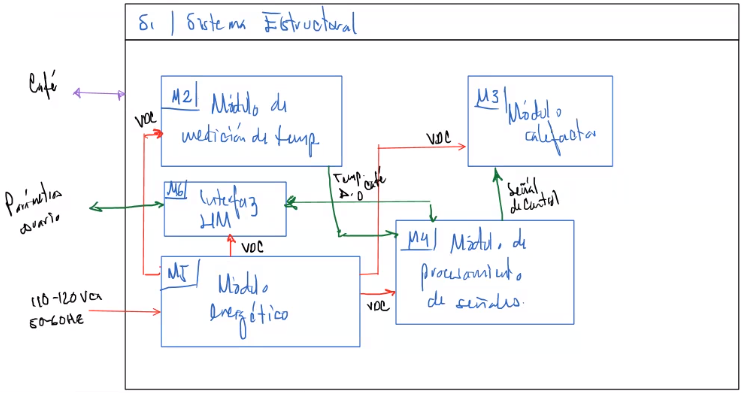 S1 | Sistema Estructural
Café
M2 Módulo de
medición de temp
M3 Módulo
calefactor
VDC
VDC
Temp.
Café
M6 Interfaz
HM
Señal
de Control
Parámetros
usuario
M4 Módulo de
procesamiento
de señales.
VDC
M5 Módulo
energético
110-120 Vca
50-60Hz
VDC